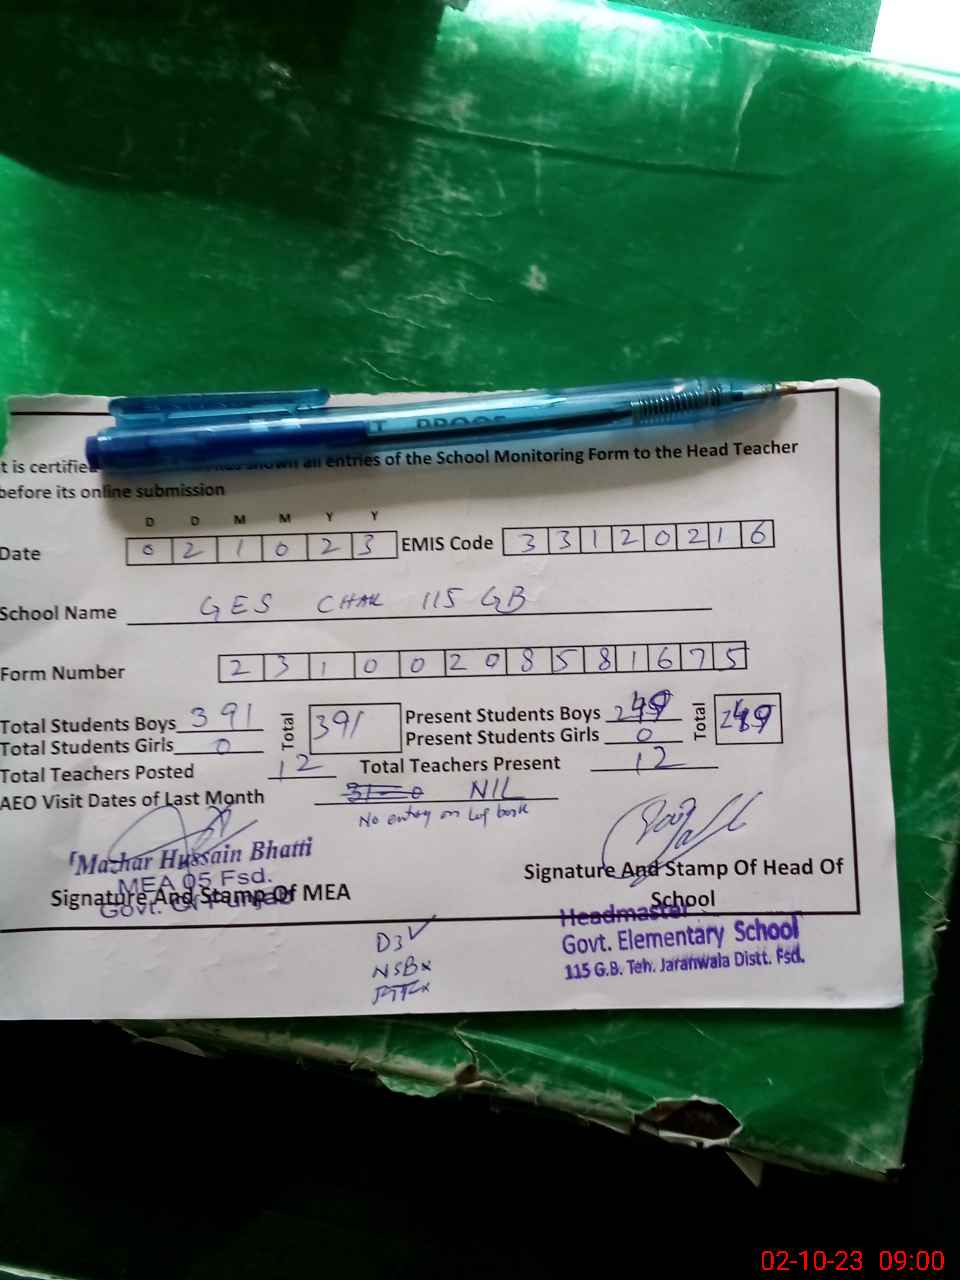 T PROOF
t is certifie shown all entries of the School Monitoring Form to the Head Teacher
before its online submission
D D M M Y Y
Date 0 2 1 0 2 3 EMIS Code 3 3 1 2 0 2 1 6
School Name GES CHAK 115 GB
Form Number 2 3 1 0 0 2 0 8 5 8 1 6 7 5
Total Students Boys 391 Total 391 Present Students Boys Total
Total Students Girls 0 Present Students Girls 0
Total Teachers Posted 12 Total Teachers Present 12
AEO Visit Dates of Last Month NIL
No entry on Log book
Mazhar Hussain Bhatti
MEA 05 Fsd.
Govt. Of Punjab
Signature And Stamp Of MEA
Signature And Stamp Of Head Of
School
Headmaster
Govt. Elementary School
115 G.B. Teh. Jaranwala Distt. Fsd.
D3 ✓
NSB x
02-10-23 09:00